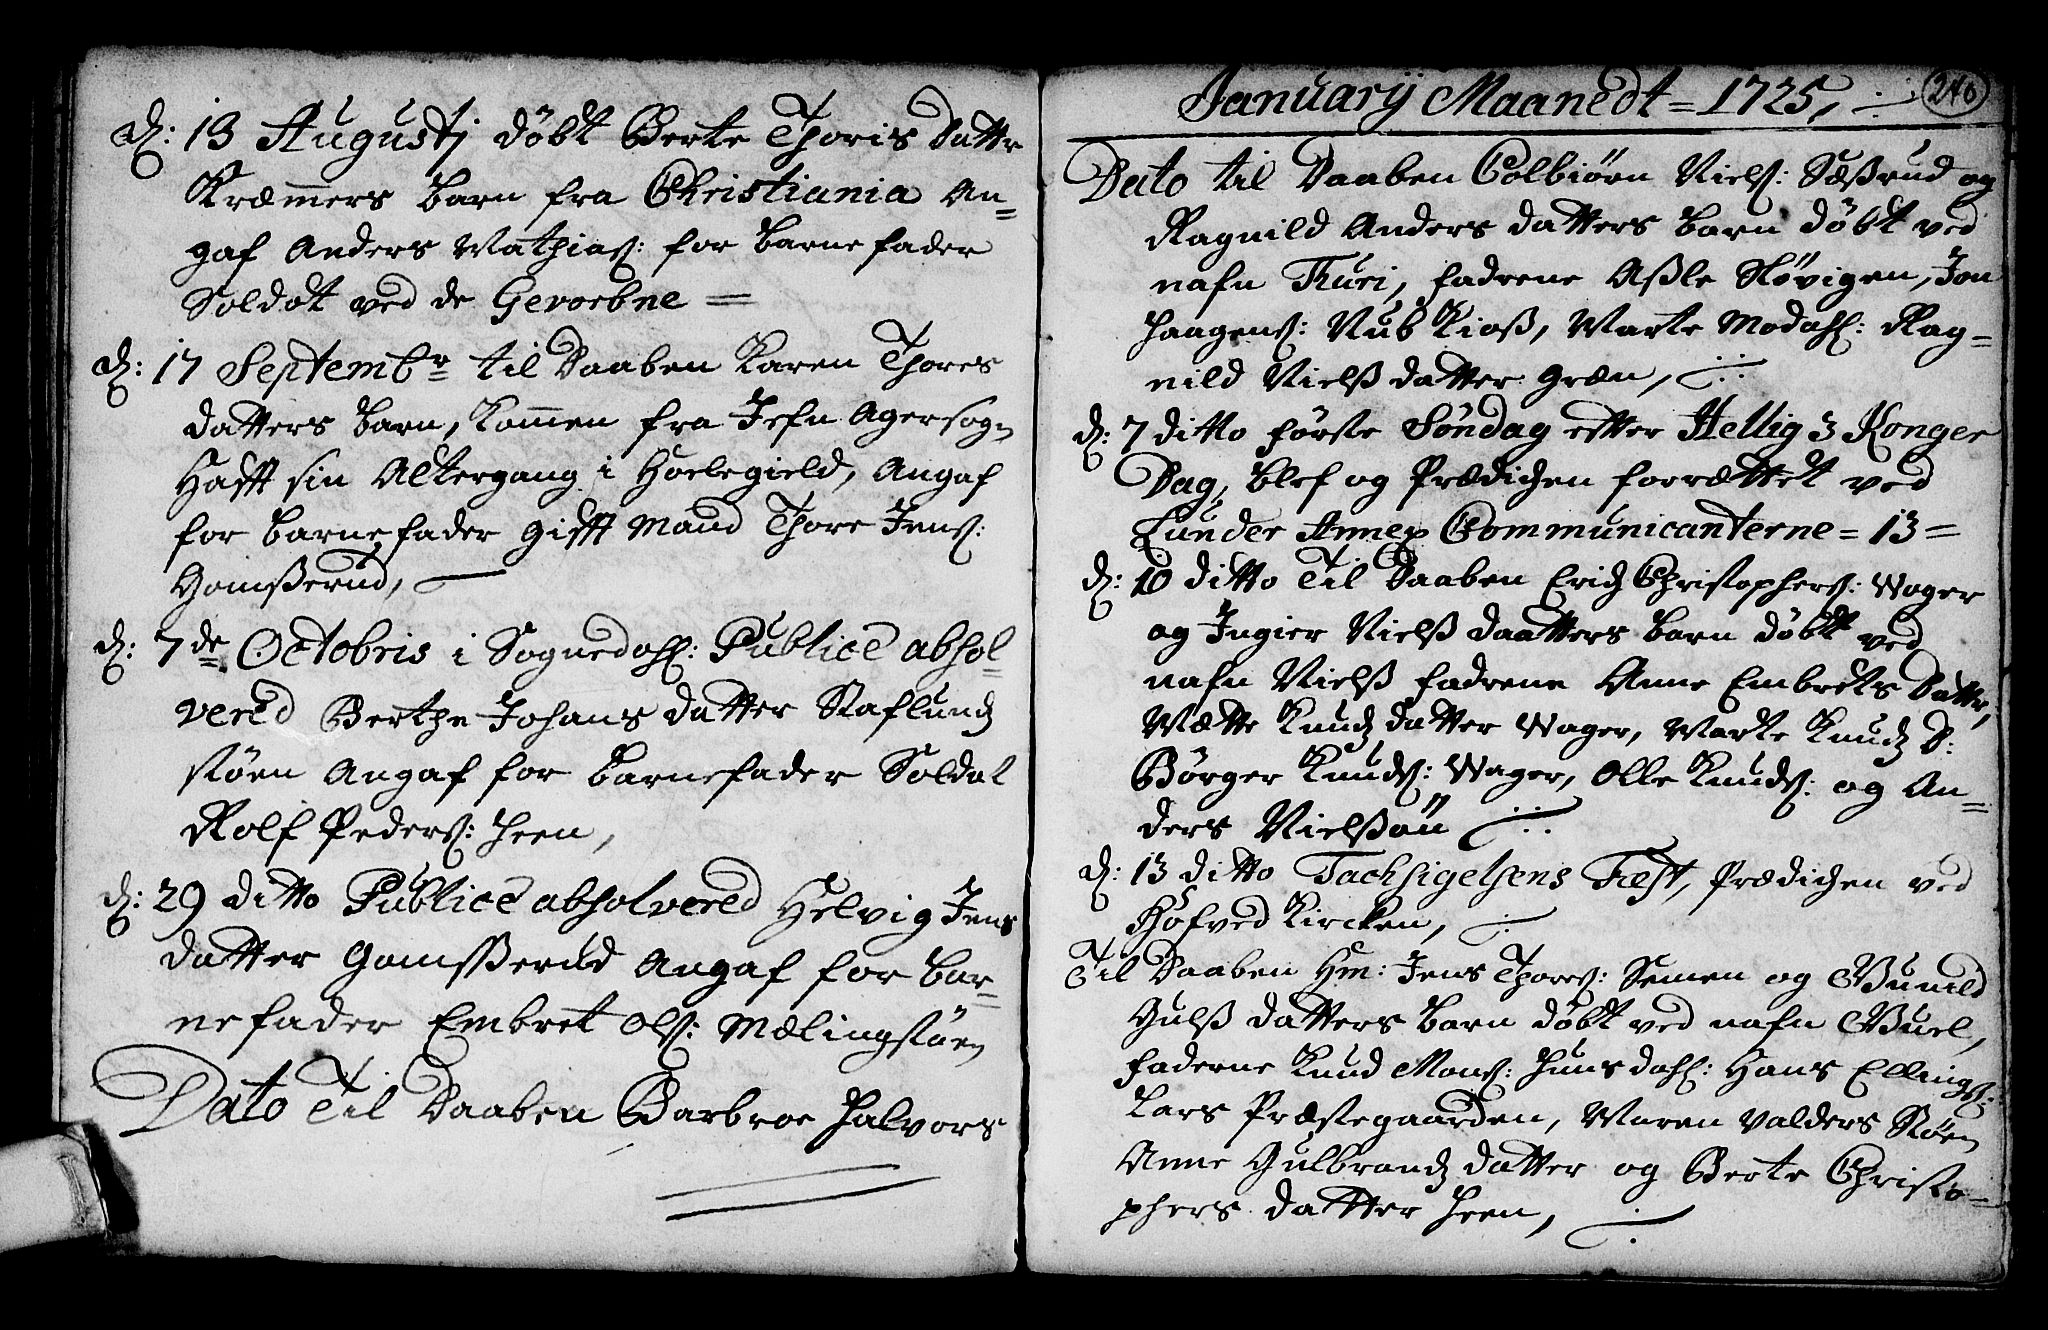 d: 13 Augustj döbt Berte Thoris datter
Kræm̄ers barn fra Christiania An=
gaf Anders Mathias: for barne fader
Soldat ved de Gevorbne =
d: 17 Septembr til Daaben Karen Thores
datters barn, kom̄en fra Agersogn
Hafft sin Altergang i Hoelegield, Angaf
for barne fader gifft Mand Thore Jens:
Gomsserud,
d: 7de Octobris i Sognedahl: Publicè absol=
vered Berthe Johans datter Raflunds
støen Angaf for barnefader Soldat
Rolf Peders: Heen,
d: 29 ditto Publicè absolvered Helvig Jens
datter Gomsserud Angaf for bar=
nefader Embret Ols: Mælingstöen
Dato Til Daaben Barbroe Halvors
Januarij Maanedt = 1725,
246
Dato til Daaben Colbiörn Niels: Sæssrud og
Ragnild Anders datters barn döbt ved
nafn Thuri, fadrene Assle Stövigen, Jon
Haagens: Marte Modahl: Rag=
nild Nielss datter Græn,
d: 7 ditto förste Söndag efter Hellig 3 Konger
Dag, blef og Prædichen forrættet ved
Lunder Annex Communicanterne = 13 =
d: 10 ditto Til Daaben Erich Christophers: Wager
og Ingier Nielss daatters barn döbt ved
nafn Nielss fadrene Anne Embrets datter,
Mætte Knuds datter Wager, Marte Knuds D:
Börger Knuds: Wager, Olle Knuds: og An=
ders Nielssön
d: 13 ditto Tachsigelsens Fæst, Prædichen ved
Hofved Kircken,
Til Daaben Hm: Jens Thores: Semen og Gunild
Gulss datters barn döbt ved nafn Guel,
faderne Knud Mons: Hunsdahl: Hans Ellings:
Lars Præstegaarden, Maren Valders Støen
Anne Gulbrands datter og Berte Christo=
phers datter Heen,